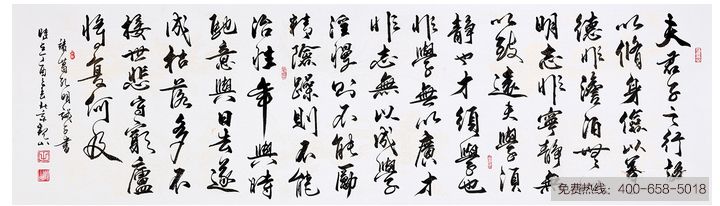 夫君子之行靜
以脩身儉以養
德非澹泊無
明志非寧靜無
以致遠夫學須
靜也才須學也
非學無以廣才
非志無以成學
淫慢則不能勵
精險躁則不能
治性年與時
馳意與日去遂
成枯落多不
接世悲守窮廬
將復何及
諸葛孔明誡子書
時在丁酉之春北京
免费热线：400-658-5018